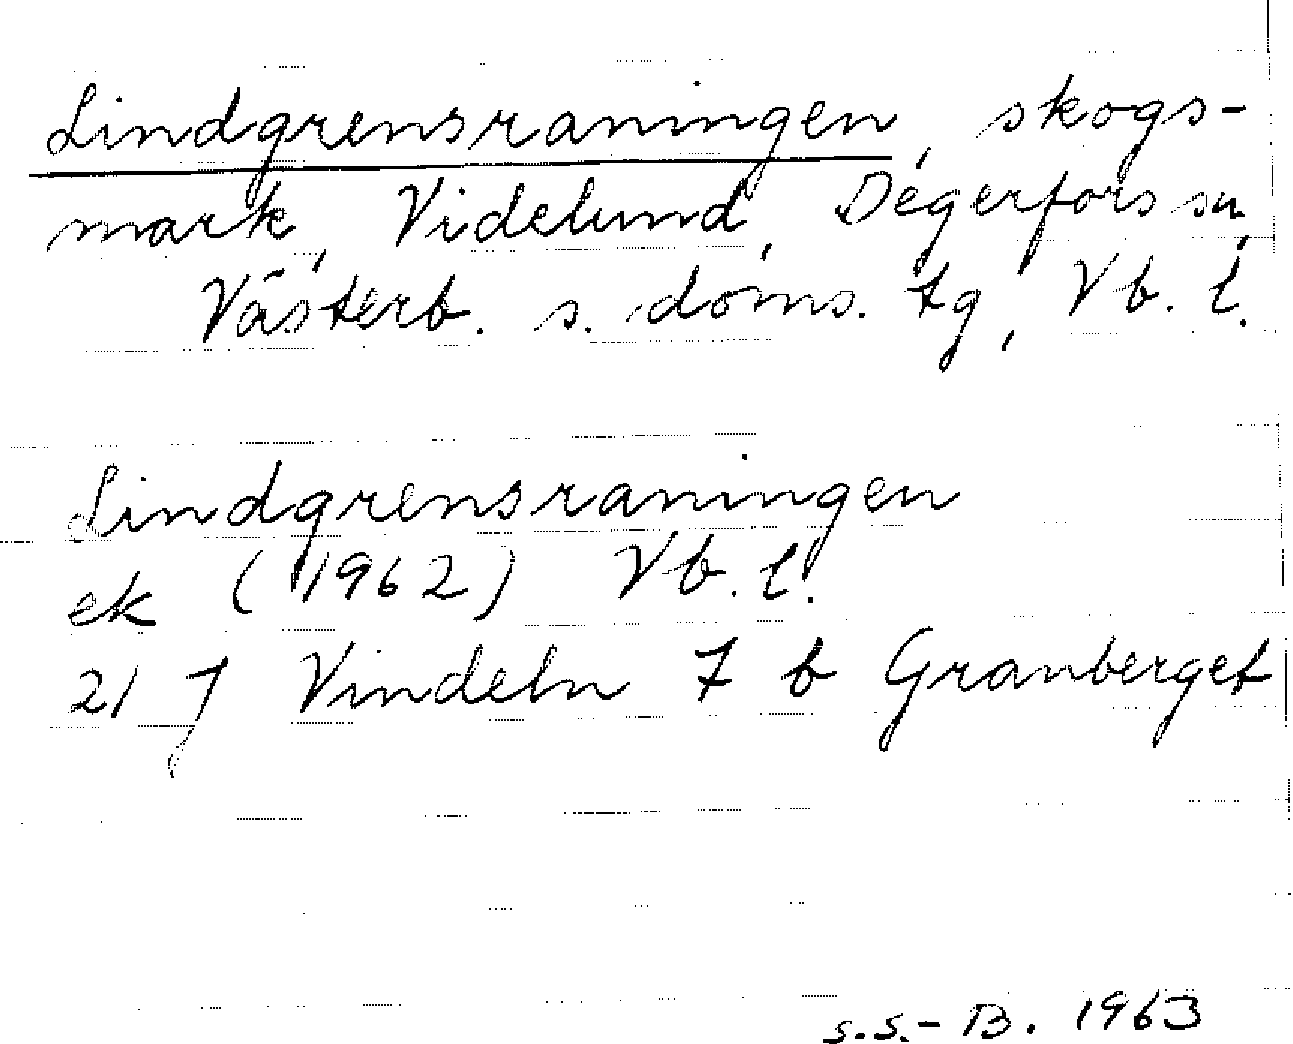 Lindgrensraningen, skogs-
mark, Videlund, Degerfors sn,
Västerb. s. doms. tg, Vb. l.
Lindgrensraningen
ek (1962) Vb. l.
21 J Vindeln 7 b Granberget
S.S.-B. 1963